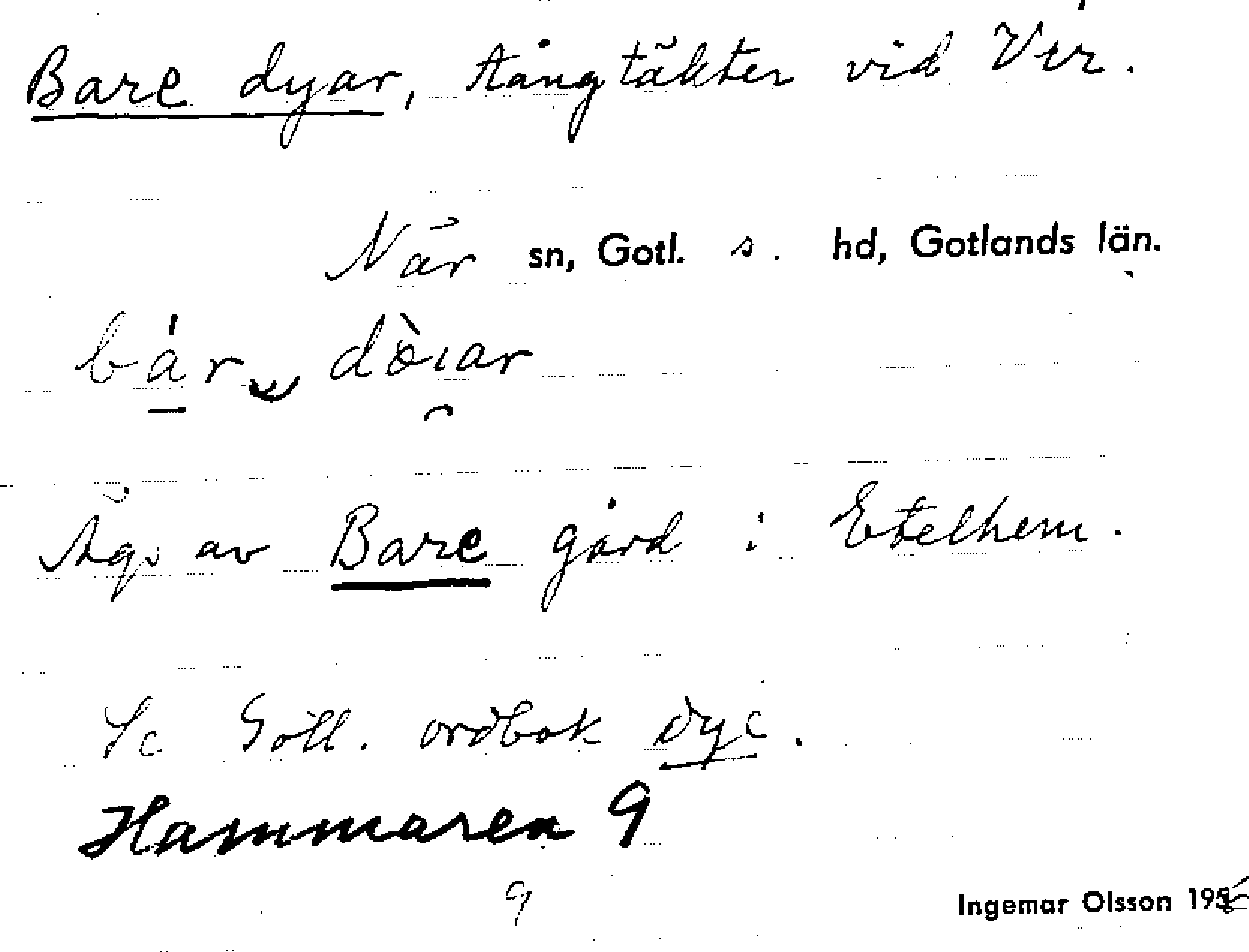 Bare dyar, tångtäkter vid Vir.
När sn, Gotl. s. hd, Gotlands län.
bår dòıar
Ägs av Bare gård i Etelhem.
Se Gotl. ordbok dye.
Hammaren 9
9
Ingemar Olsson 195